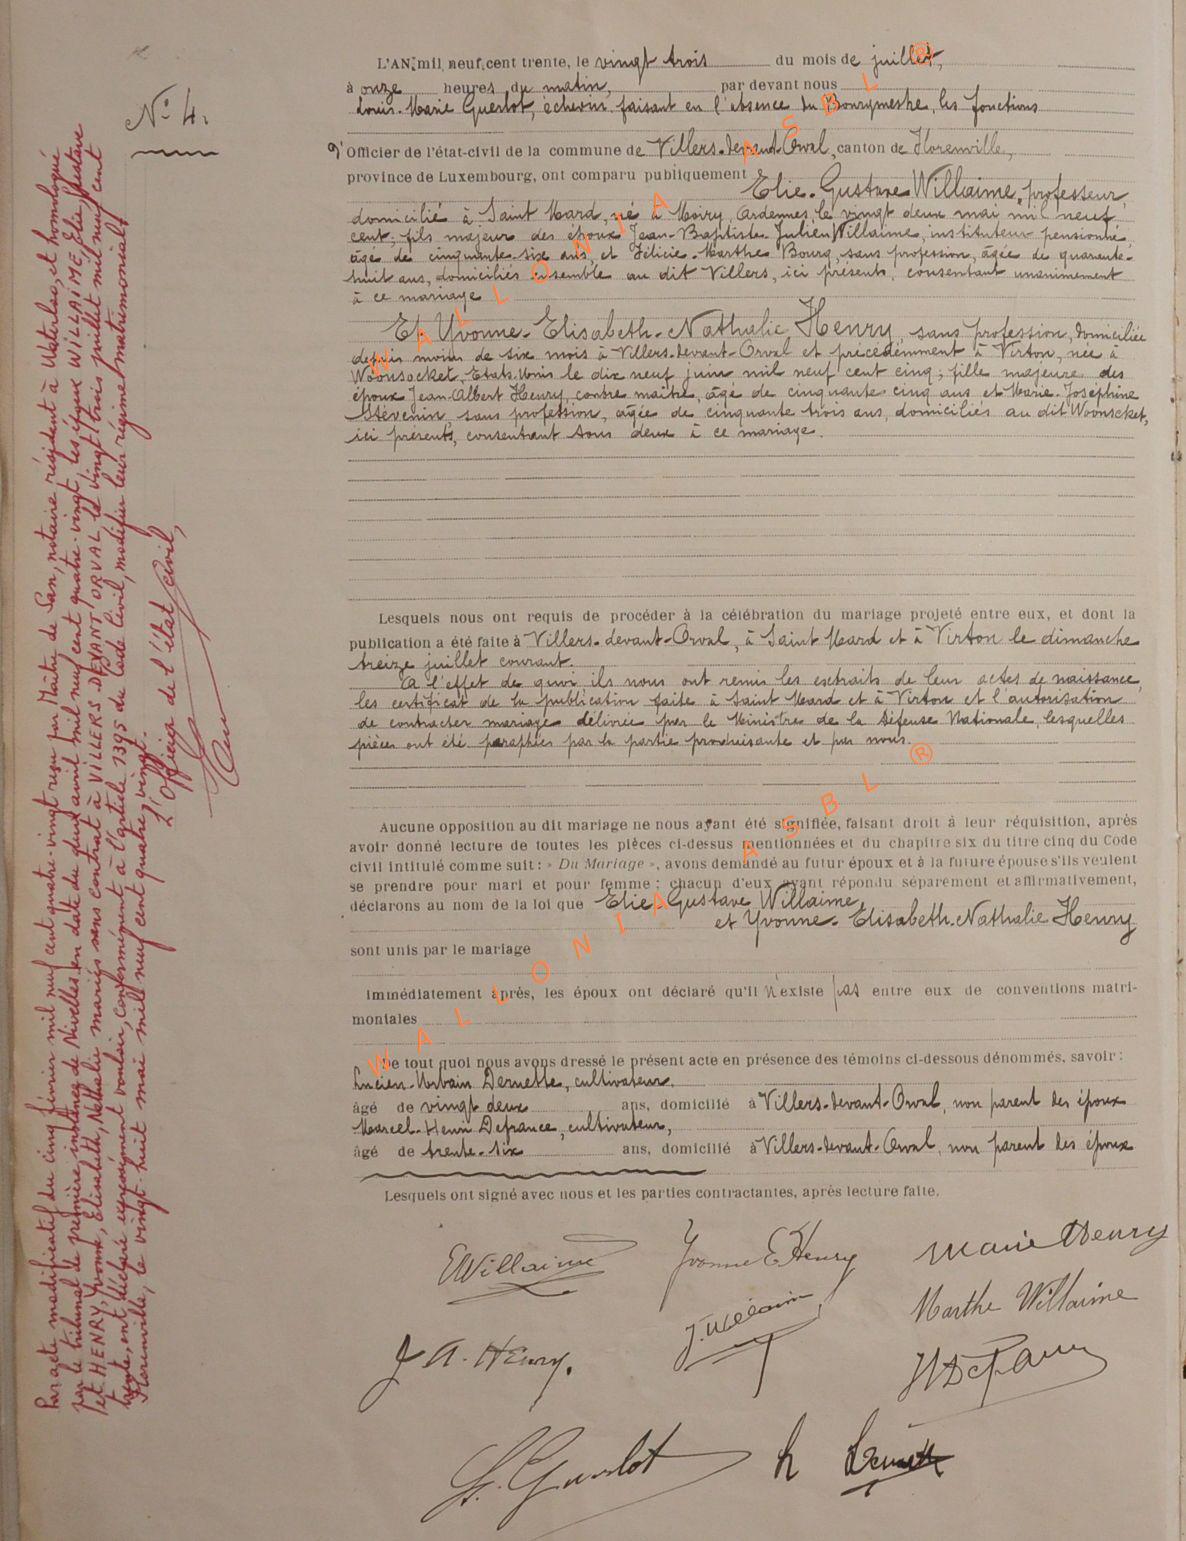 N° 4.
L'AN mil neuf cent trente, le vingt trois du mois de juillet,
à onze heures du matin, par devant nous
Louis-Marie Guerlot, échevin faisant en l'absence du Bourgmestre, les fonctions
d'Officier de l'état-civil de la commune de Villers-devant-Orval, canton de Florenville,
province de Luxembourg, ont comparu publiquement Elie-Gustave Willaime, professeur,
domicilié à Saint Mard, né à Moiry, Ardennes, le vingt deux mai mil neuf
cent, fils majeur des époux Jean-Baptiste-Julien Willaime, instituteur pensionné,
âgé de cinquante-six ans, et Félicie-Marthe Bourg, sans profession, âgée de quarante-
huit ans, domiciliés ensemble au dit Villers, ici présents, consentant unanimement
à ce mariage
Et Yvonne-Elisabeth-Nathalie Henry, sans profession, domiciliée
depuis moins de six mois à Villers-devant-Orval et précédemment à Virton, née à
Woonsocket, Etats-Unis le dix neuf juin mil neuf cent cinq, fille majeure des
époux Jean-Albert Henry, contre maître, âgé de cinquante cinq ans et Marie-Joséphine
Stévenin, sans profession, âgée de cinquante trois ans, domiciliés au dit Woonscket,
ici présents, consentant tous deux à ce mariage.
Lesquels nous ont requis de procéder à la célébration du mariage projeté entre eux, et dont la
publication a été faite à Villers-devant-Orval, à Saint Mard et à Virton le dimanche
treize juillet courant.
A l'effet de quoi ils nous ont remis les extraits de leur actes de naissance,
les certificat de la publication faite à Saint Mard et à Virton et l'autorisation
de contracter mariage délivrée par le Ministre de la Défense Nationale, lesquelles
pièces ont été paraphées par la partie produisante et par nous.
Aucune opposition au dit mariage ne nous ayant été signifiée, faisant droit à leur réquisition, après
avoir donné lecture de toutes les pièces ci-dessus mentionnées et du chapitre six du titre cinq du Code
civil intitulé comme suit : « Du Mariage », avons demandé au futur époux et à la future épouse s'ils veulent
se prendre pour mari et pour femme ; chacun d'eux ayant répondu séparément et affirmativement,
déclarons au nom de la loi que Elie-Gustave Willaime,
et Yvonne-Elisabeth-Nathalie Henry
sont unis par le mariage
Immédiatement après, les époux ont déclaré qu'il n'existe pas entre eux de conventions matri-
moniales
De tout quoi nous avons dressé le présent acte en présence des témoins ci-dessous dénommés, savoir :
Lucien-Urbain Dernette, cultivateur,
âgé de vingt deux ans, domicilié à Villers-devant-Orval, non parent des époux
Marcel-Henri Defrance, cultivateur,
âgé de trente-six ans, domicilié à Villers-devant-Orval, non parent des époux
Lesquels ont signé avec nous et les parties contractantes, après lecture faite.
EWillaime Yvonne E Henry Marie Henry
J. Willaime Marthe Willaime
J A. Henry.
L. Guerlot
Par acte modificatif du cinq février mil neuf cent quatre-vingt reçu par Maître de San, notaire résidant à Waterloo, et homologué
par le tribunal de première instance de Nivelles en date du deux avril mil neuf cent quatre-vingt, les époux WILLAIME, Elie, Gustave
et HENRY, Yvonne, Elisabeth, Nathalie mariés sans contrat à VILLERS-DEVANT-ORVAL le vingt-trois juillet mil neuf cent
trente, ont déclaré expressément vouloir, conformément à l'article 1395 du Code Civil, modifier leur régime matrimonial.
Florenville, le vingt-huit mai mil neuf cent quatre-vingt.
L'Officier de l'état civil,
WALLONIA ASBL ®
WALLONIA ASBL ®